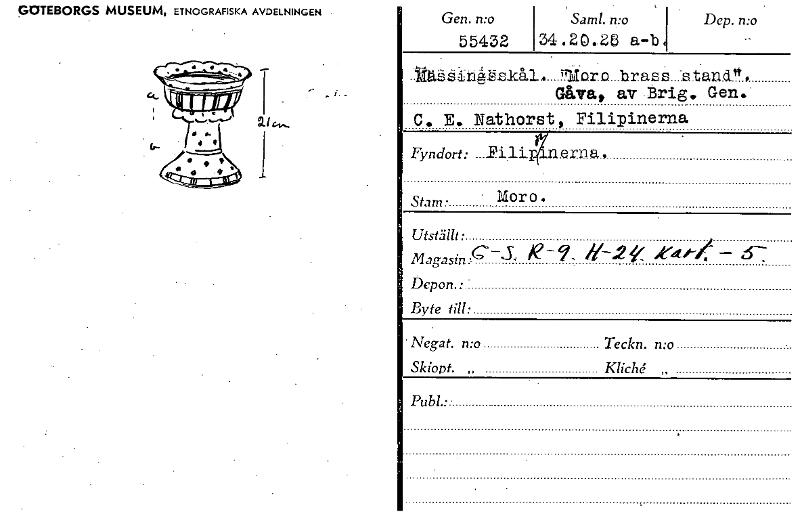 GÖTEBORGS MUSEUM, ETNOGRAFISKA AVDELNINGEN
a
b
21cm
Gen. n:o Saml. n:o Dep. n:o
55432 34.20.28 a-b.
Mässingsskål. "Moro brass stand".
Gåva, av Brig. Gen.
C. E. Nathorst, Filipinerna
Fyndort: Filippinerna.
Stam: Moro.
Utställt:
Magasin: G-S. R-9. H-24. Kart. - 5.
Depon.:
Byte till:
Negat. n:o Teckn. n:o
Skiopt. „ Kliché „
Publ.: